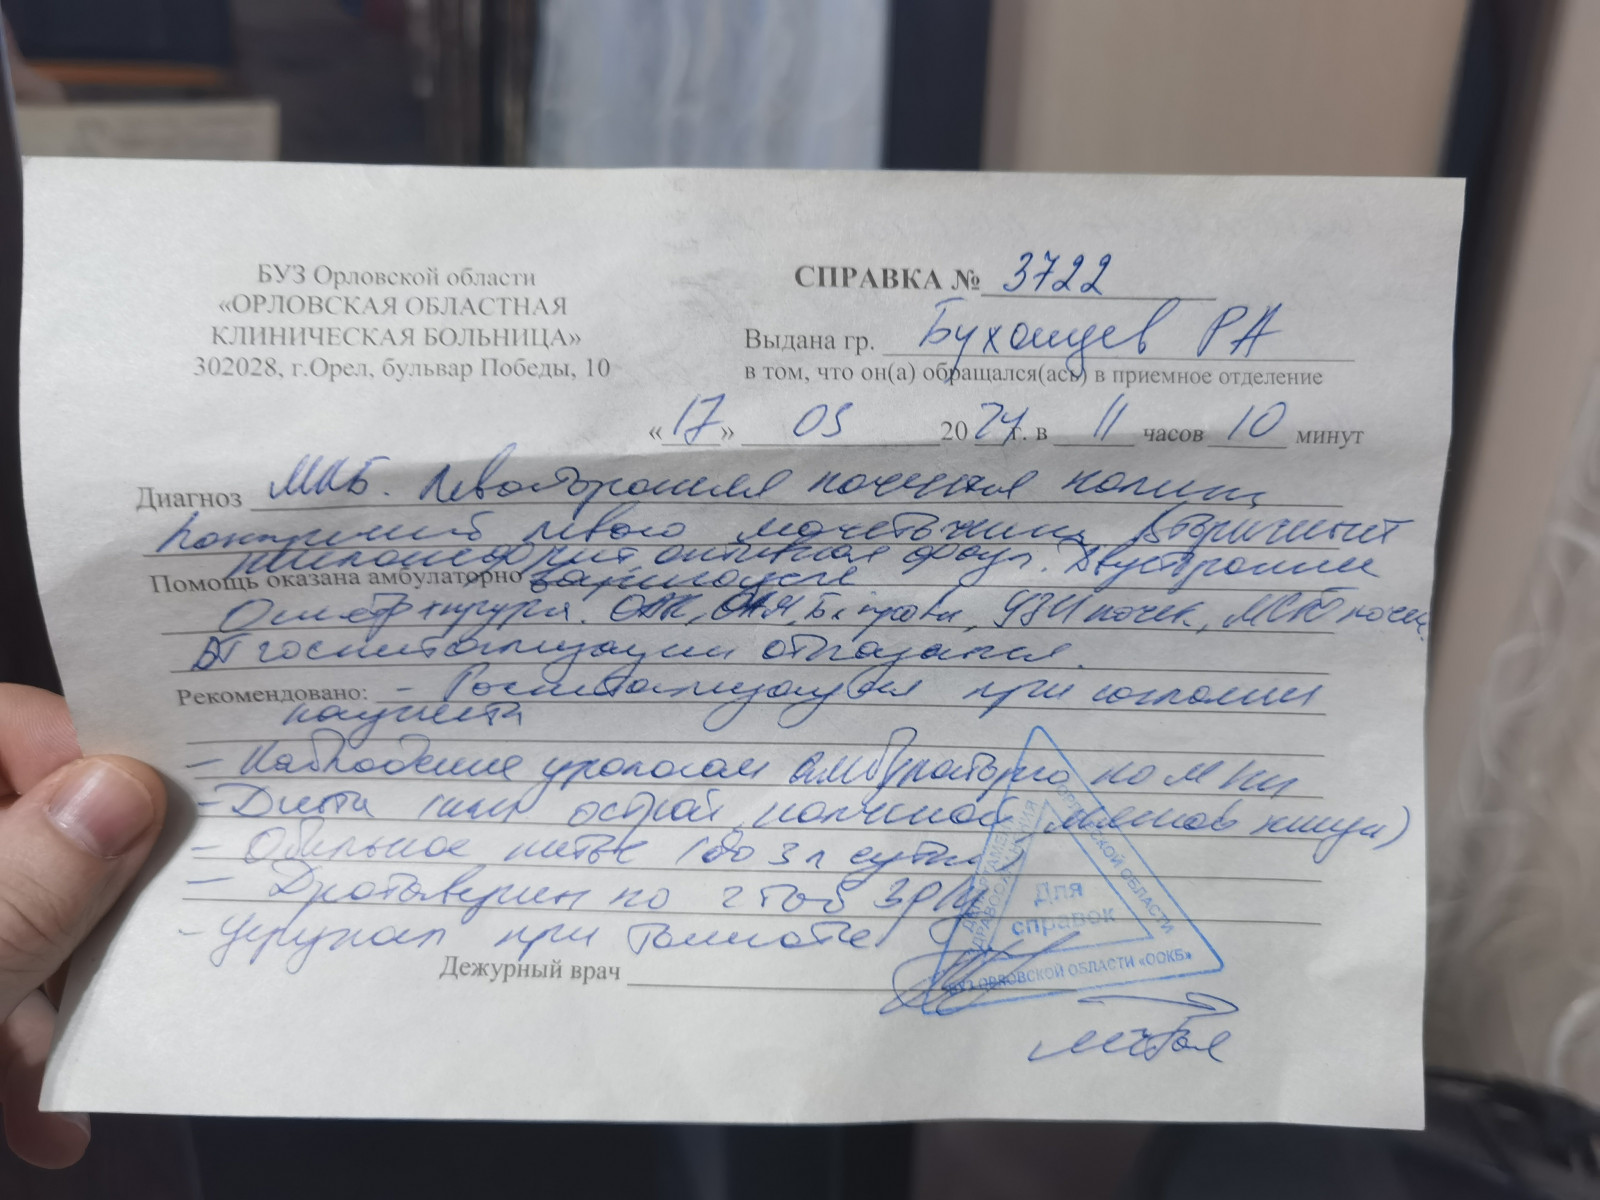 БУЗ Орловской области
«ОРЛОВСКАЯ ОБЛАСТНАЯ
КЛИНИЧЕСКАЯ БОЛЬНИЦА»
302028, г.Орел, бульвар Победы, 10
СПРАВКА № 3722
Выдана гр. РА
в том, что он(а) обращался(ась) в приемное отделение
«17» 20 24 г. в 11 часов 10 минут
Диагноз МКБ. Левосторонняя почечная колика
левого мочеточника. Вторичный
пиелонефрит, активная фаза. Двусторонний
Помощь оказана амбулаторно
Осмотр хирурга. ОАК, ОАМ, Б/х крови, УЗИ почек, почек.
От госпитализации отказался.
Рекомендовано: - Госпитализация при согласии
пациента
- Наблюдение уролога амбулаторно по м/ж
- Диета острой, пищи)
- Обильное питье (до 3 л сутки)
- Дротаверин по 2 таб 3 р/д
- при тошноте
Дежурный врач
ДЕПАРТАМЕНТ ЗДРАВООХРАНЕНИЯ ОРЛОВСКОЙ ОБЛАСТИ
Для
справок
БУЗ ОРЛОВСКОЙ ОБЛАСТИ «ООКБ»